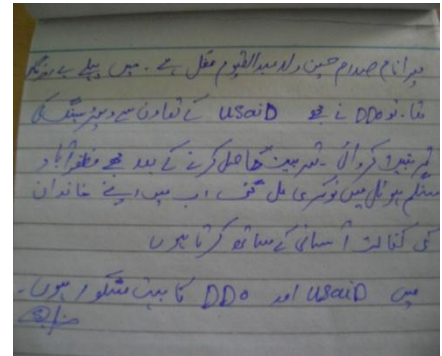 میرا نام صدام حسین ولد عبدالقیوم مغل ہے۔ میں پہلے بے روزگار
تھا۔ تو DDO نے مجھے USAID کے تعاون سے
ٹریننگ کروائی۔ تربیت حاصل کرنے کے بعد مجھے مظفرآباد
سنگم ہوٹل میں نوکری مل گئی اب میں اپنے خاندان
کی کفالت آسانی کے ساتھ کرتا ہوں
میں USAID اور DDO کا بہت مشکور ہوں۔